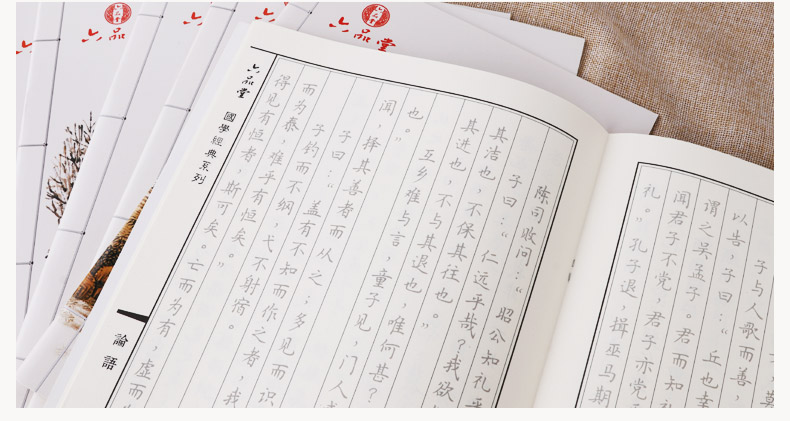 六品堂
六品堂
六品堂
國學經典系列
論語
陈司败问：“昭公知礼乎
子曰：“仁远乎哉？我欲
其洁也，不保其往也。”
其进也，不与其退也，唯何甚？
互乡难与言，童子见，门人
也。”
闻，择其善者而从之；多见而识
子曰：“盖有不知而作之者，我
子钓而不纲，弋不射宿。
而为泰，难乎有恒矣。”
得见有恒者，斯可矣。亡而为有，虚而
子与人歌而善，
以告，子曰：“丘也幸
谓之吴孟子。君而知礼
闻君子不党，君子亦党
礼。”孔子退，揖巫马期